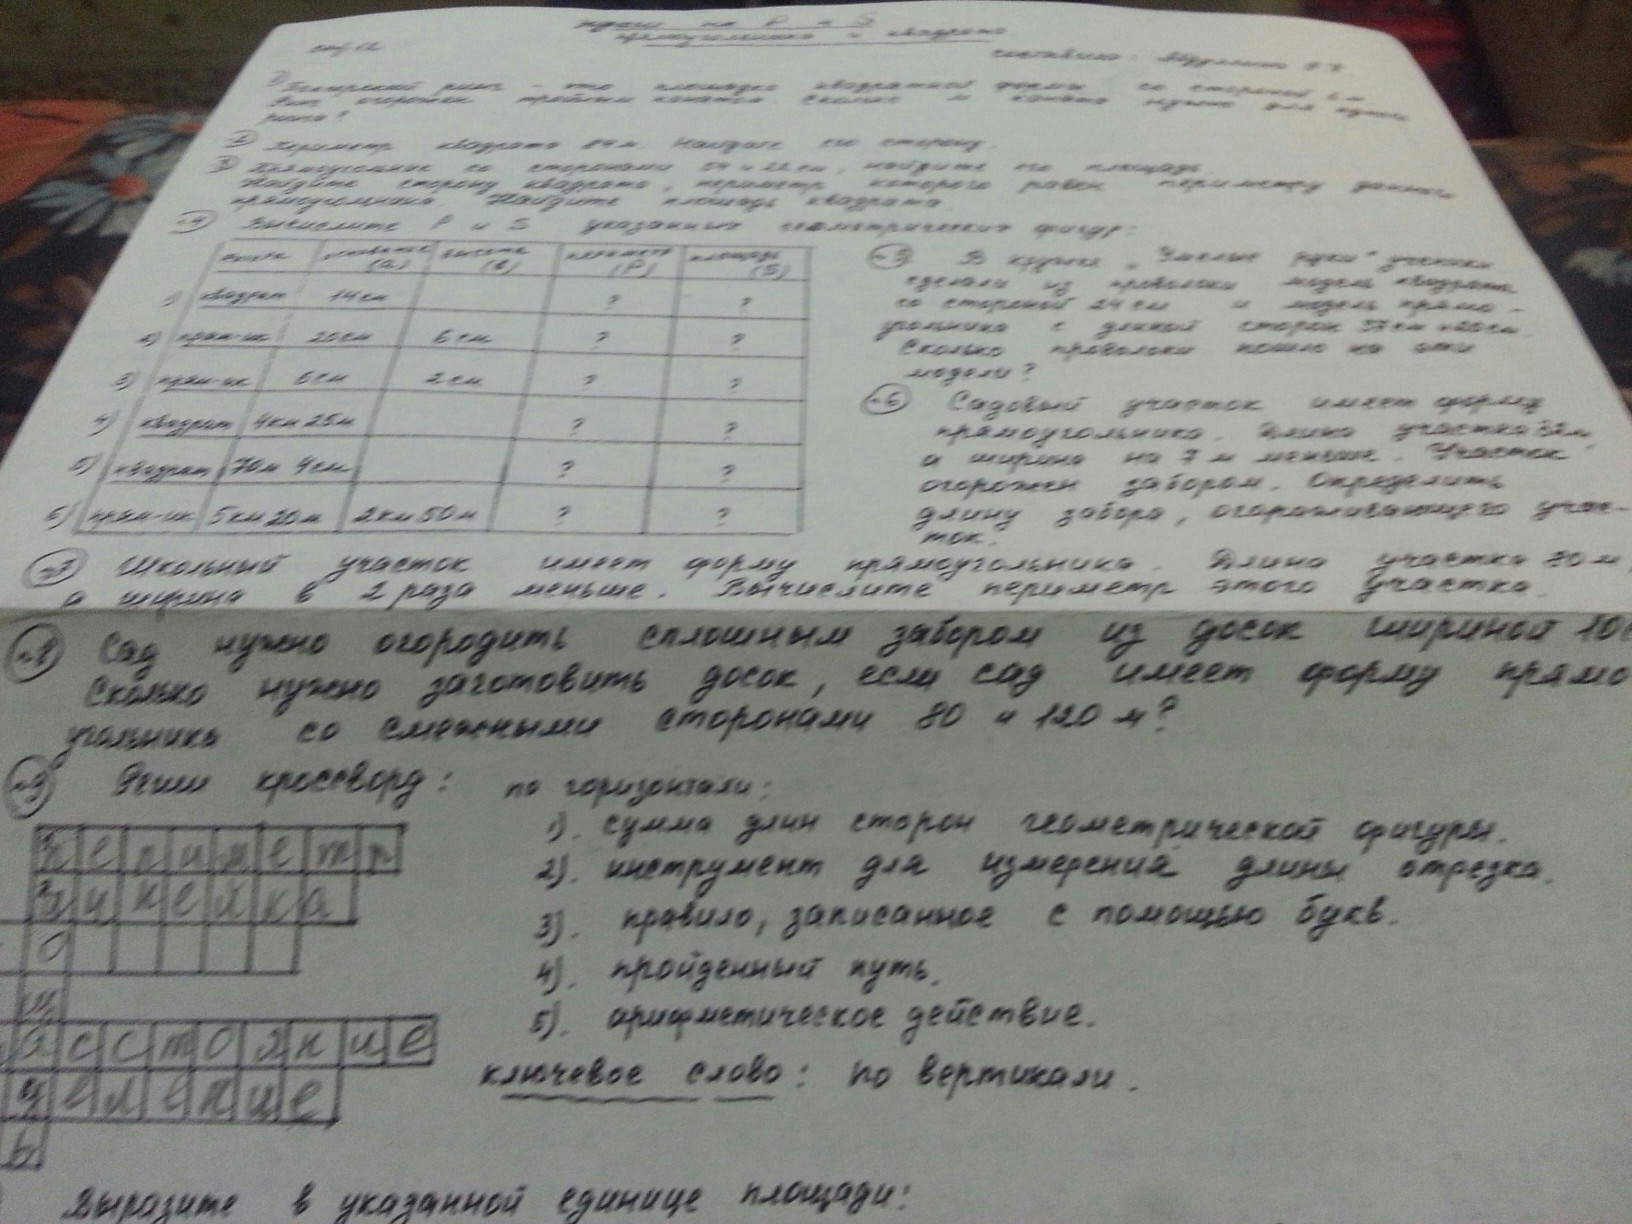 задачи на P и S
прямоугольника и квадрата
стр. 12
составила:
1) Боксерский ринг - это площадка квадратной формы со стороной 6 м.
Ринг огорожен тройным канатом. Сколько м каната нужно для
ринга?
2) Периметр квадрата 84 м. Найдите его сторону.
3) Прямоугольник со сторонами 54 и 22 см, найдите его площадь.
Найдите сторону квадрата, периметр которого равен периметру данного
прямоугольника. Найдите площадь квадрата.
№4 Вычислите P и S указанных геометрических фигур:
основание (a) высота (в) периметр (P) площадь (S)
1) квадрат 14 см ? ?
2) прям-ик 20 см 6 см ? ?
3) прям-ик 6 см 2 см ? ?
4) квадрат 4 км 25 м ? ?
5) квадрат 70 м 4 см ? ?
6) прям-ик 5 км 20 м 2 км 50 м ? ?
№5 В кружке „Умелые руки" ученики
сделали из проволоки модель квадрата
со стороной 24 см и модель прямо-
угольника с длиной сторон 37 см и 20 см.
Сколько проволоки пошло на эти
модели?
№6 Садовый участок имеет форму
прямоугольника. Длина участка 32 м
а ширина на 7 м меньше. Участок
огорожен забором. Определить
длину забора, огораживающего учас-
ток.
№7 Школьный участок имеет форму прямоугольника. Длина участка 70 м,
а ширина в 2 раза меньше. Вычислите периметр этого участка.
№8 Сад нужно огородить сплошным забором из досок шириной 10
Сколько нужно заготовить досок, если сад имеет форму прямо
угольника со смежными сторонами 80 и 120 м?
№9 Реши кроссворд: по горизонтали:
1). сумма длин сторон геометрической фигуры.
2). инструмент для измерения длины отрезка.
3). правило, записанное с помощью букв.
4). пройденный путь.
5). арифметическое действие.
ключевое слово: по вертикали.
периметр
линейка
о
щ
асстояние
деление
ь
Выразите в указанной единице площади: